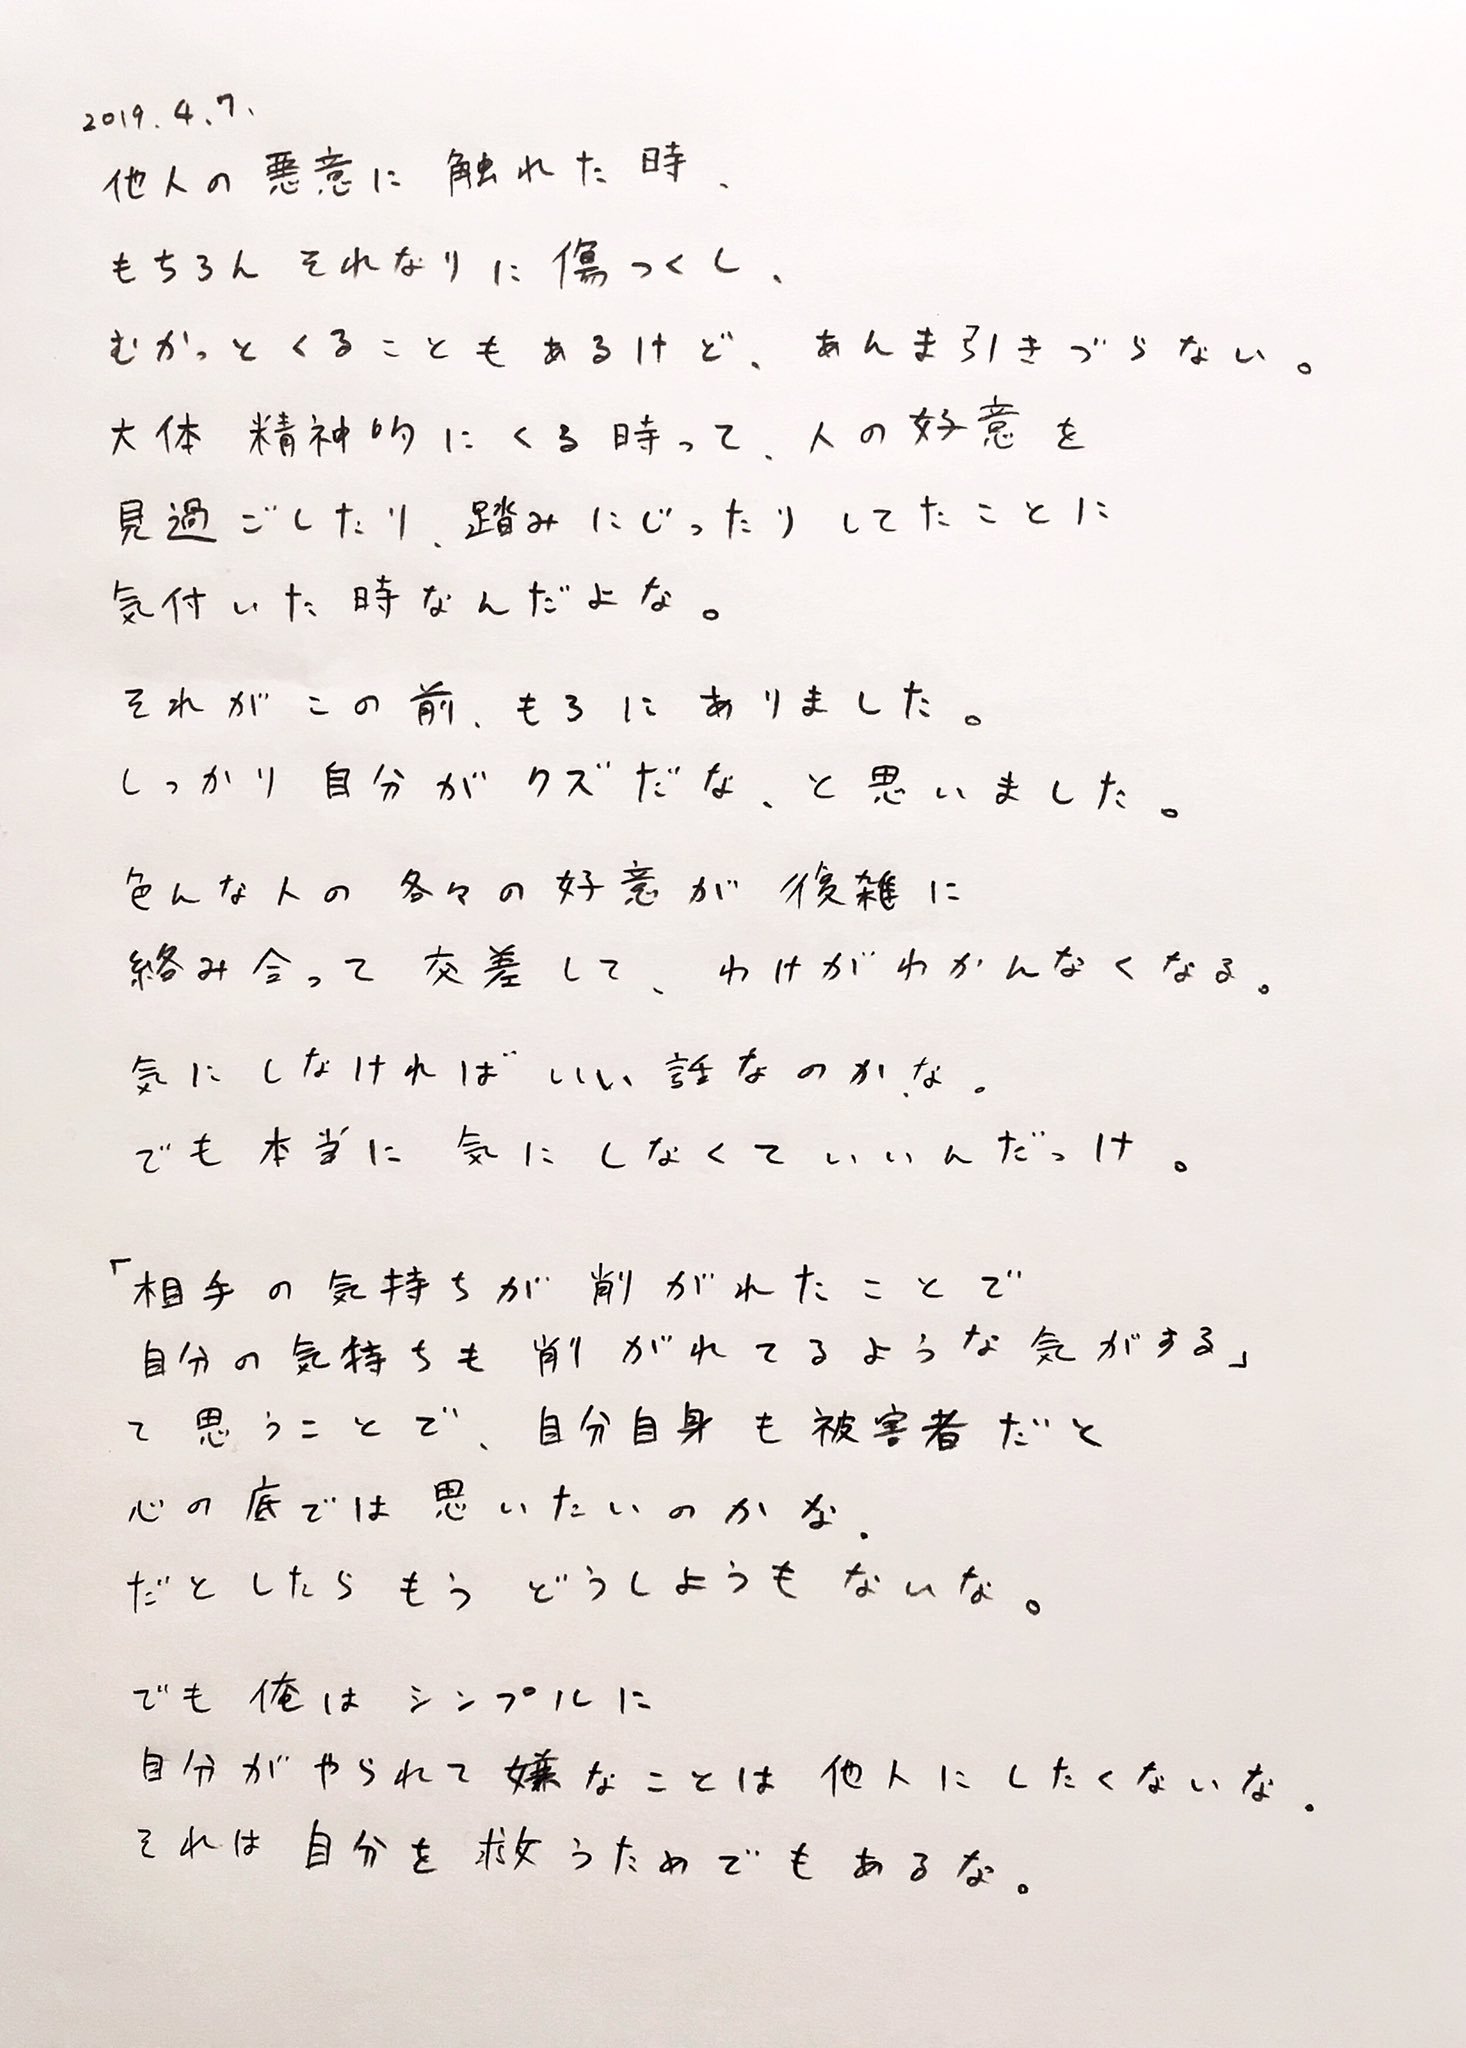 2019.4.7.
他人の悪意に触れた時、
もちろんそれなりに傷つくし、
むかっとくることもあるけど、あんま引きづらない。
大体精神的にくる時って、人の好意を
見過ごしたり、踏みにじったりしてたことに
気付いた時なんだよな。
それがこの前、もろにありました。
しっかり自分がクズだな、と思いました。
色んな人の各々の好意が複雑に
絡み合って交差して、わけがわかんなくなる。
気にしなければいい話なのかな。
でも本当に気にしなくていいんだっけ。
「相手の気持ちが削がれたことで
自分の気持ちも削がれてるような気がする」
て思うことで、自分自身も被害者だと
心の底では思いたいのかな.
だとしたらもうどうしようもないな。
でも俺はシンプルに
自分がやられて嫌なことは他人にしたくないな.
それは自分を救うためでもあるな。